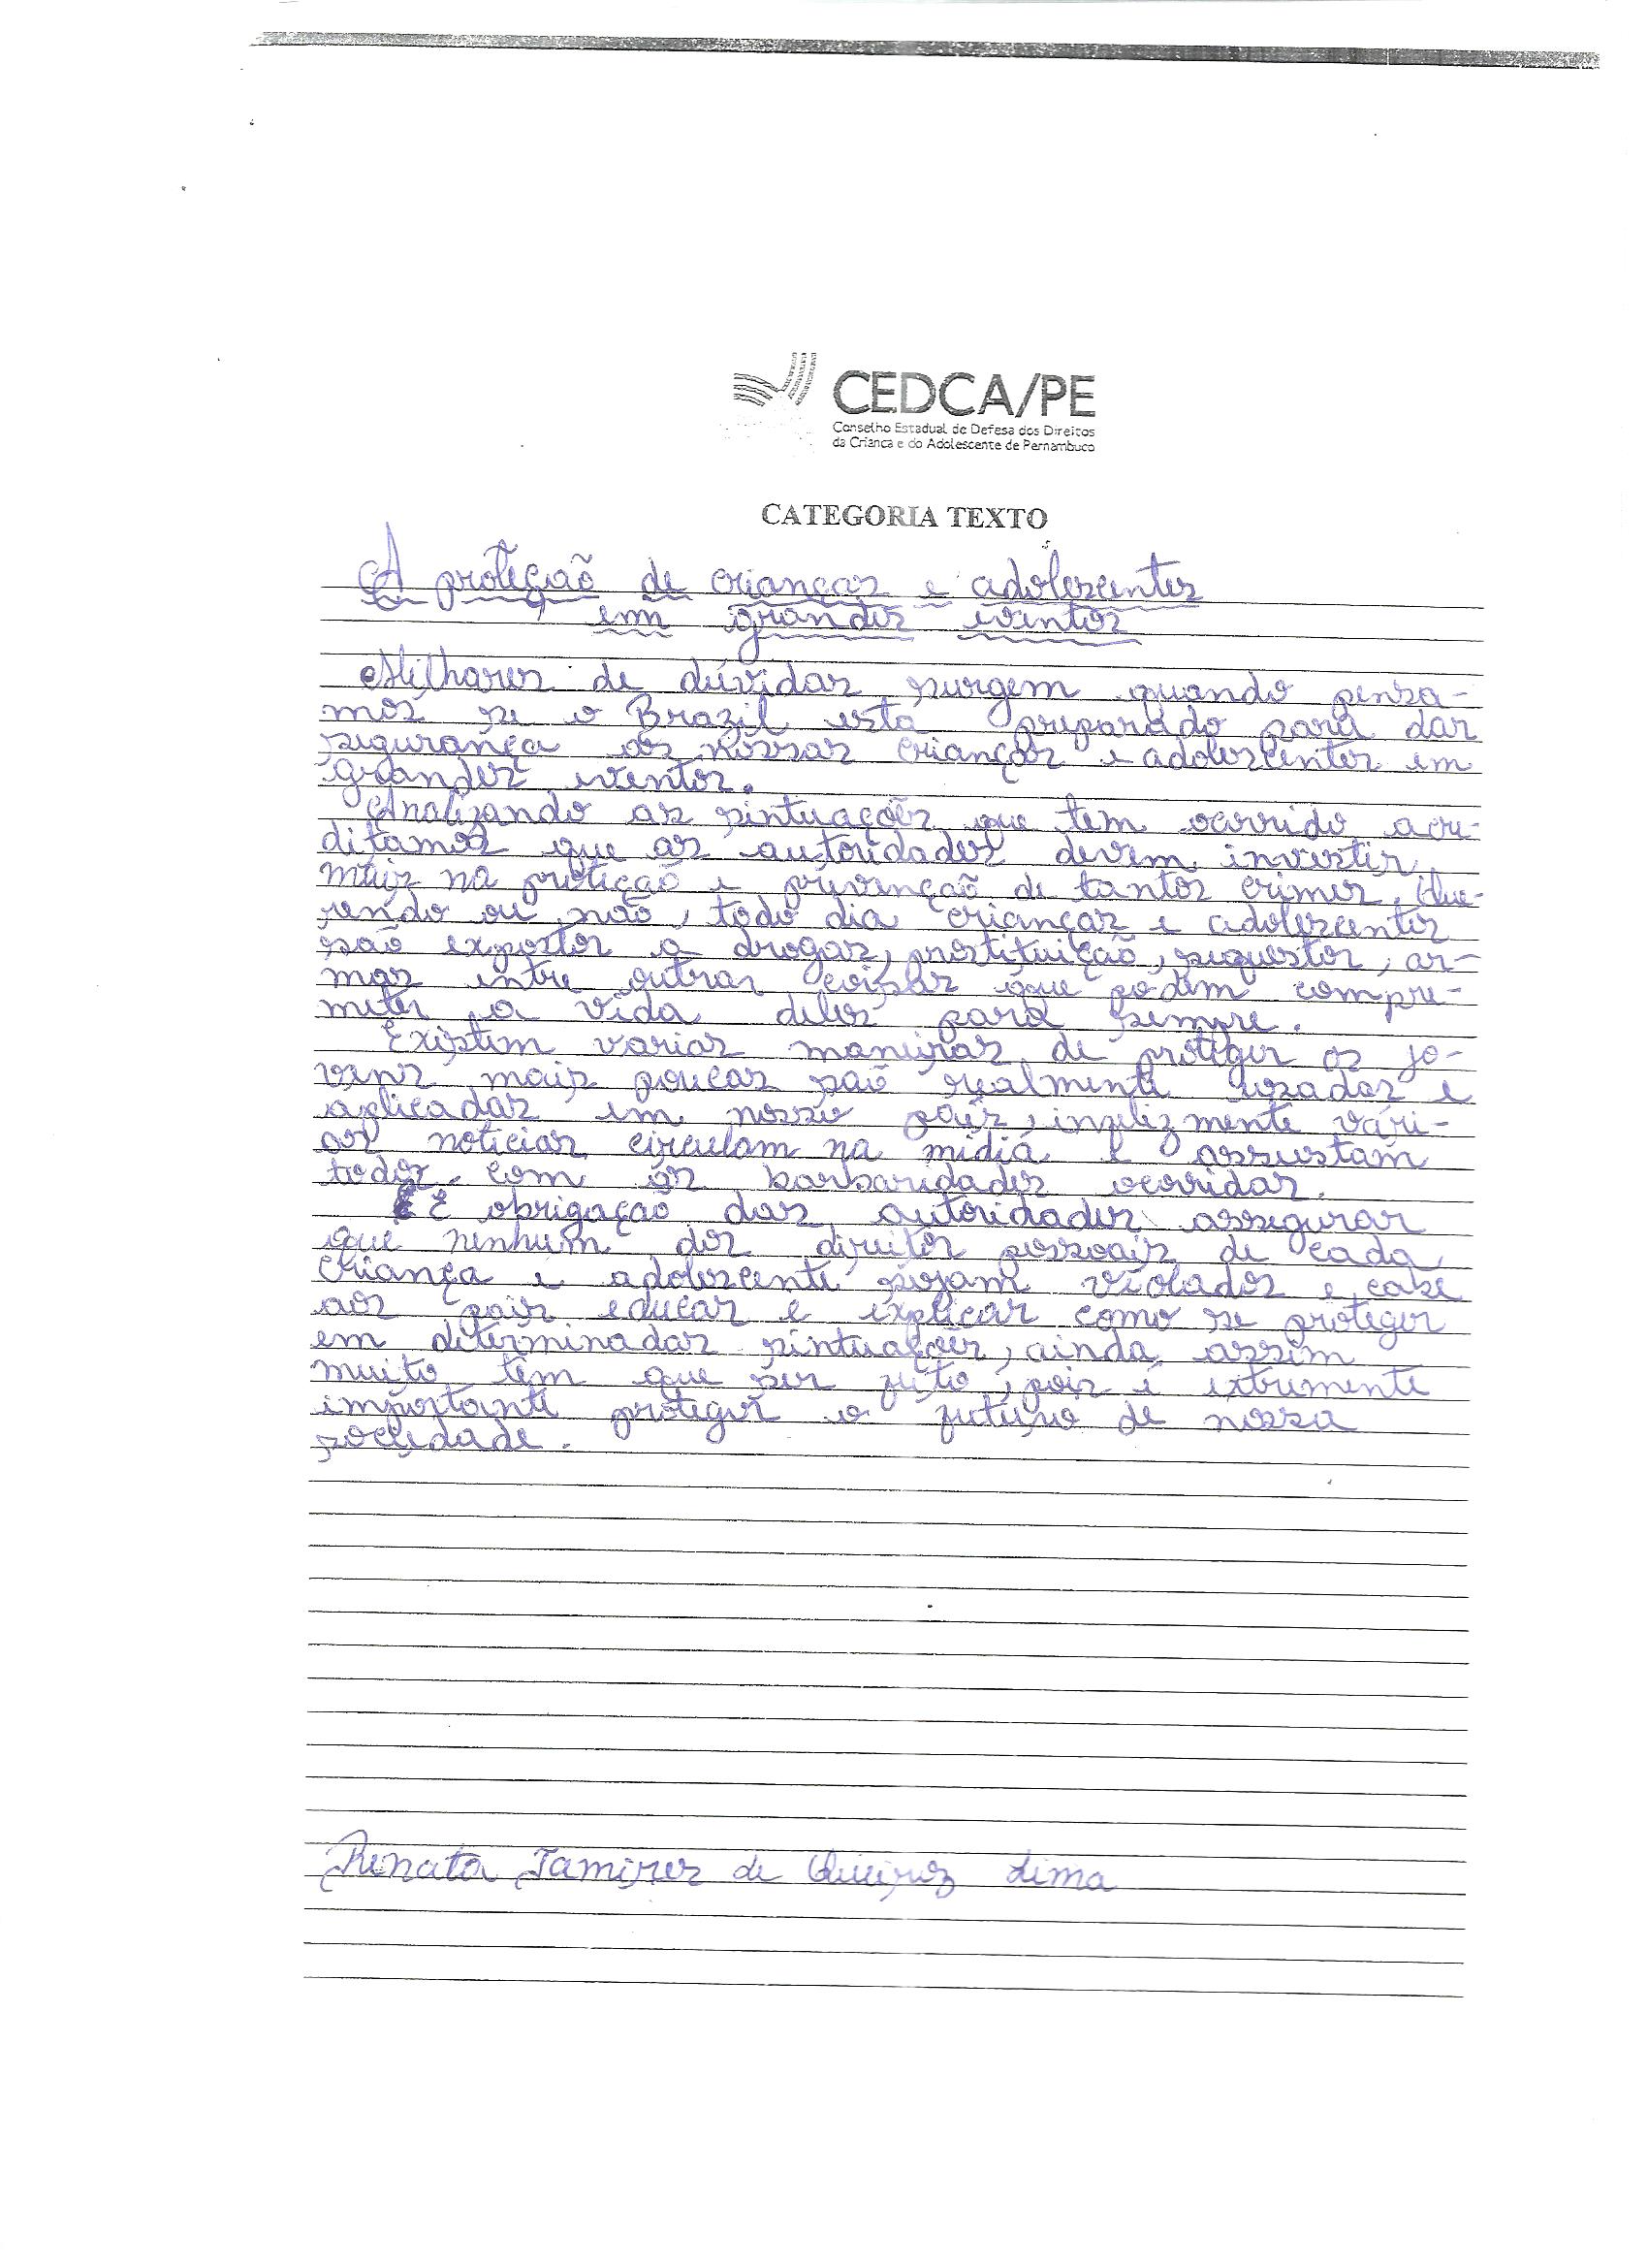 CEDCA/PE
Conselho Estadual de Defesa dos Direitos
da Criança e do Adolescente de Pernambuco
CATEGORIA TEXTO
A proteção de crianças e adolescentes
em grandes eventos
Milhares de dúvidas surgem quando pensa-
mos se o Brazil esta preparado para dar
segurança as nossas crianças e adolescentes em
grandes eventos.
Analizando as sintuações que tem ocorrido acre-
ditamos que as autoridades devem investir
mais na proteção e prevenção de tantos crimes. Que-
rendo ou não, todo dia crianças e adolescentes
são expostos a drogas, prostituição, sequestos, ar-
mas entre outras coisas que podem compre-
meter a vida deles para sempre.
Existem varias maneiras de proteger os jo-
vens mais poucas são realmente usadas e
aplicadas em nosso país, infelizmente vári-
as noticias circulam na midia e assustam
todos com as barbaridades ocorridas.
E obrigação das autoridades assegurar
que nenhum dos direitos pessoais de cada
criança e adolescente sejam violados e cabe
aos pais educar e explicar como se proteger
em determinadas sintuações, ainda assim
muito têm que ser feito, pois é extremente
importante proteger o futuro de nossa
sociedade.
Renata Tamires de Queiroz Lima